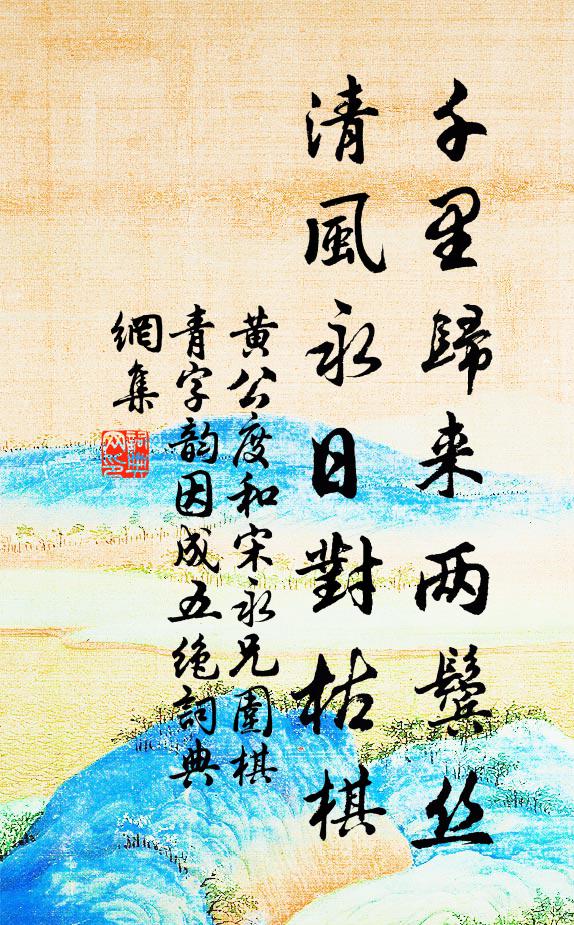 千里歸来两鬓丝
清風永日對枯棋
黄公度和宋永兄圍棋
青字韵因成五绝詞典
網集